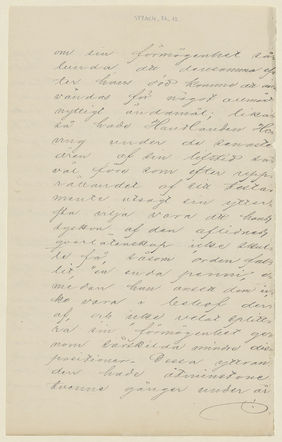 om sin förmögenhet så-
lunda, att densamma ef-
ter hans död komme att an-
vändas för något allmän-
nyttigt ändamål; likaså
hade Handlanden He-
ring under de senaste
åren af sin lefstid så-
väl före som efter upp-
rättandet af sitt testa-
mente utsagt sin yttersta
vilja vara att hans
af den aflidnes
qvarlåtenskap icke skul-
le få såsom orden fal-
lit "en enda penni", e-
medan han ansett dem ic-
ke vara i behof der-
af och icke velat splitt-
ra sin förmögenhet ge-
nom särskilda mindre dis-
positioner. Dessa yttran-
den hade åtminstone
tvenne gånger under år